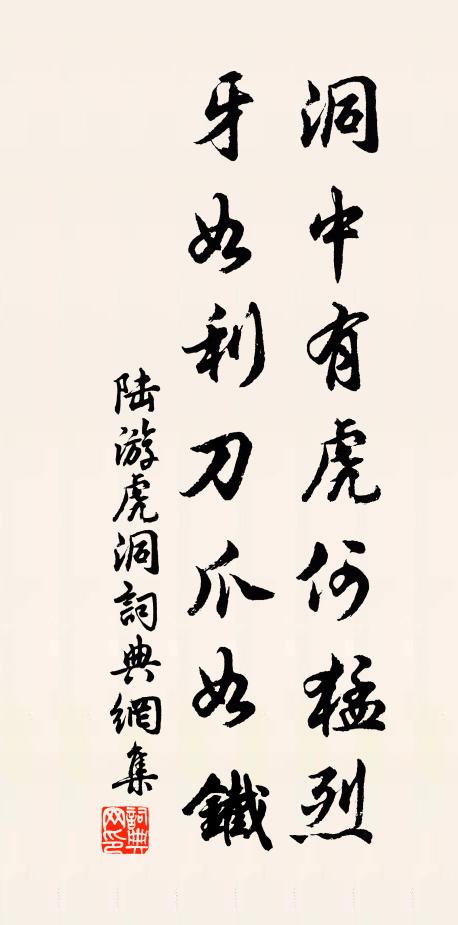 洞中有虎何猛烈
牙如利刀爪如鐵
陆游虎洞詞典網集
詞典
网印